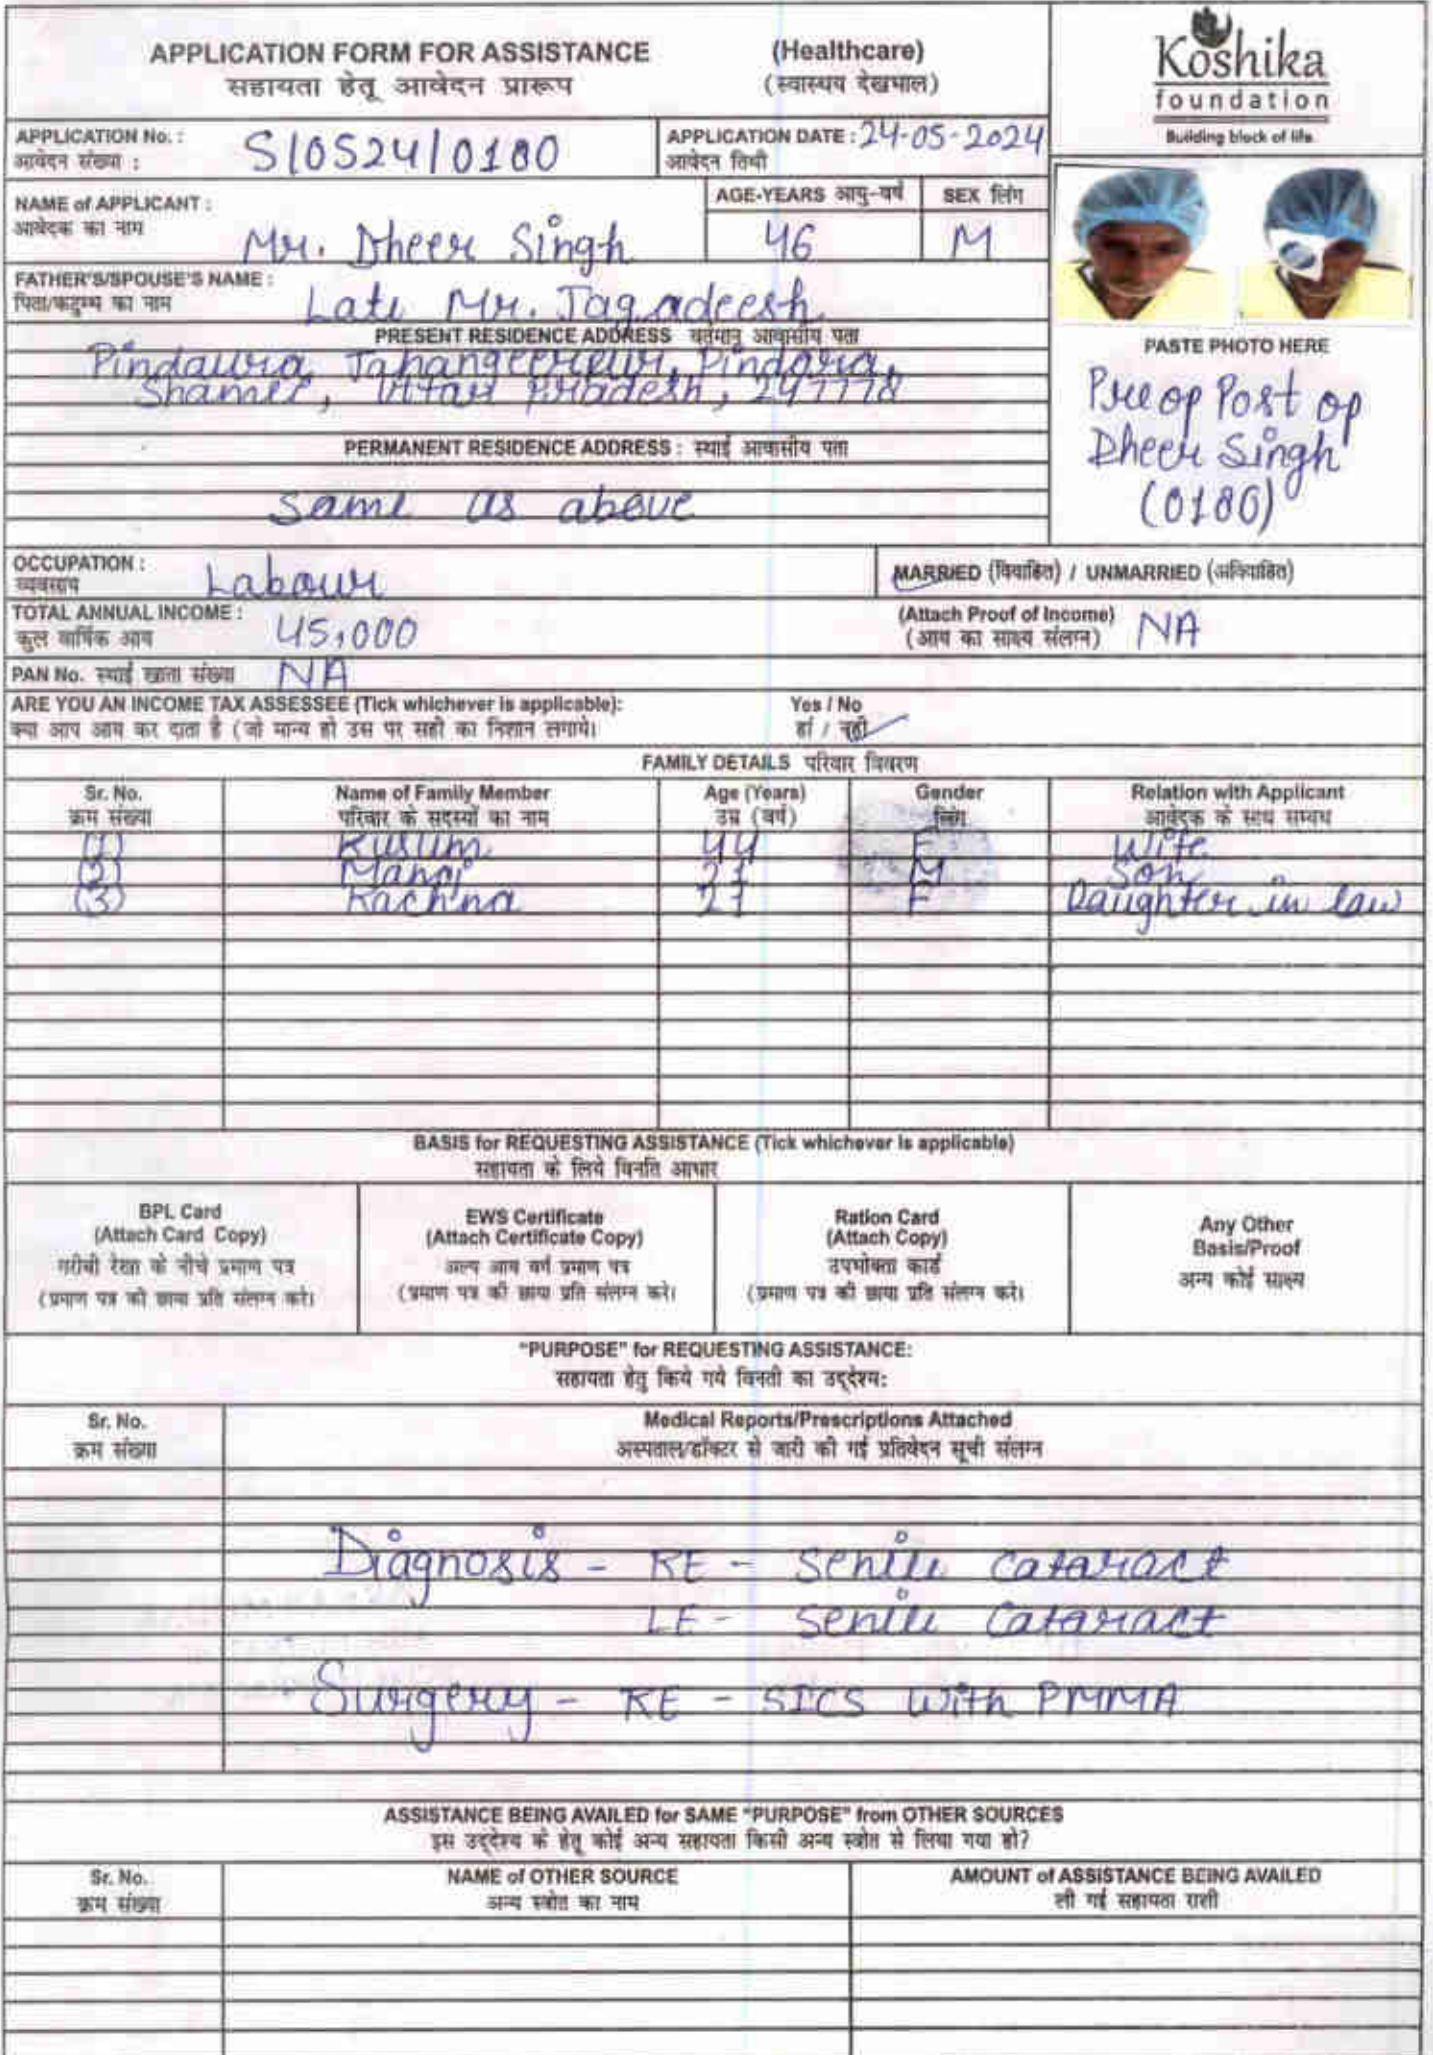 APPLICATION FORM FOR ASSISTANCE (Healthcare)
सहायता हेतू आवेदन प्रारूप (स्वास्थय देखभाल)
Koshika
foundation
Building block of life.
APPLICATION No. : S/0524/0180 APPLICATION DATE : 24-05-2024
आवेदन संख्या : आवेदन तिथी
NAME of APPLICANT : AGE-YEARS आयु-वर्ष SEX लिंग
आवेदक का नाम Mr. Dheer Singh 46 M
FATHER'S/SPOUSE'S NAME :
पिता/कटुम्ब का नाम Late Mr. Jagadeesh
PRESENT RESIDENCE ADDRESS वर्तमान आवासीय पता
Pindaura, Jahangeerpur, Pindora,
Shamli, Uttar Pradesh, 247778
PASTE PHOTO HERE
Pre op Post op
Dheer Singh
(0180)
PERMANENT RESIDENCE ADDRESS : स्थाई आवासीय पता
Same as above
OCCUPATION : Labour MARRIED (विवाहित) / UNMARRIED (अविवाहित)
व्यवसाय
TOTAL ANNUAL INCOME : 45,000 (Attach Proof of Income) NA
कुल वार्षिक आय (आय का साक्ष्य संलग्न)
PAN No. स्थाई खाता संख्या NA
ARE YOU AN INCOME TAX ASSESSEE (Tick whichever is applicable): Yes / No
क्या आप आय कर दाता है (जो मान्य हो उस पर सही का निशान लगाये। हां / नहीं
FAMILY DETAILS परिवार विवरण
Sr. No. Name of Family Member Age (Years) Gender Relation with Applicant
क्रम संख्या परिवार के सदस्यों का नाम उम्र (वर्ष) लिंग आवेदक के साथ सम्बध
(1) Kusum 44 F Wife
(2) Manoj 21 M Son
(3) Rachna 21 F Daughter in law
BASIS for REQUESTING ASSISTANCE (Tick whichever is applicable)
सहायता के लिये विनति आधार
BPL Card
(Attach Card Copy)
गरीबी रेखा के नीचे प्रमाण पत्र
(प्रमाण पत्र की छाया प्रति संलग्न करे।
EWS Certificate
(Attach Certificate Copy)
अल्प आय वर्ग प्रमाण पत्र
(प्रमाण पत्र की छाया प्रति संलग्न करे।
Ration Card
(Attach Copy)
उपभोक्ता कार्ड
(प्रमाण पत्र की छाया प्रति संलग्न करे।
Any Other
Basis/Proof
अन्य कोई साक्ष्य
"PURPOSE" for REQUESTING ASSISTANCE:
सहायता हेतु किये गये विनती का उद्देश्य:
Sr. No. Medical Reports/Prescriptions Attached
क्रम संख्या अस्पताल/डॉक्टर से जारी की गई प्रतिवेदन सूची संलग्न
Diagnosis - RE - Senile Cataract
LE - Senile Cataract
Surgery - RE - SICS with PMMA
ASSISTANCE BEING AVAILED for SAME "PURPOSE" from OTHER SOURCES
इस उद्देश्य के हेतू कोई अन्य सहायता किसी अन्य स्त्रोत से लिया गया हो?
Sr. No. NAME of OTHER SOURCE AMOUNT of ASSISTANCE BEING AVAILED
क्रम संख्या अन्य स्त्रोत का नाम ली गई सहायता राशी